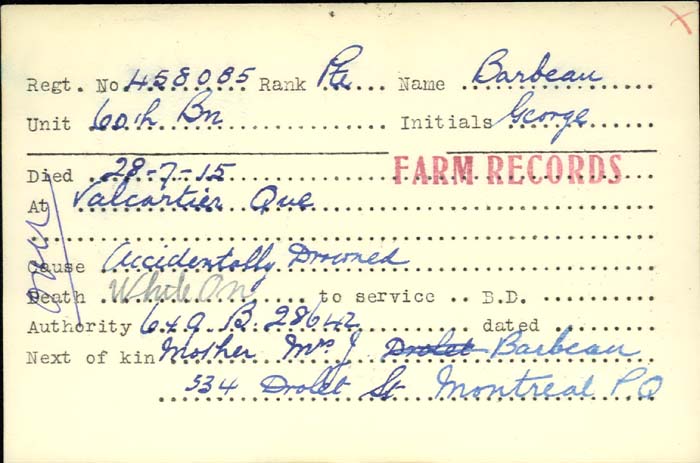 Regt. No 458085 Rank Pte Name Barbeau
Unit 60th Bn Initials George
Died 28-7-15 FARM RECORDS
At Valcartier Que
Cause Accidentally Drowned
Death While On to service B.D.
Authority 649 B 28642 dated
Next of kin Mother Mrs J Drolet Barbeau
534 Drolet St Montreal P Q
over